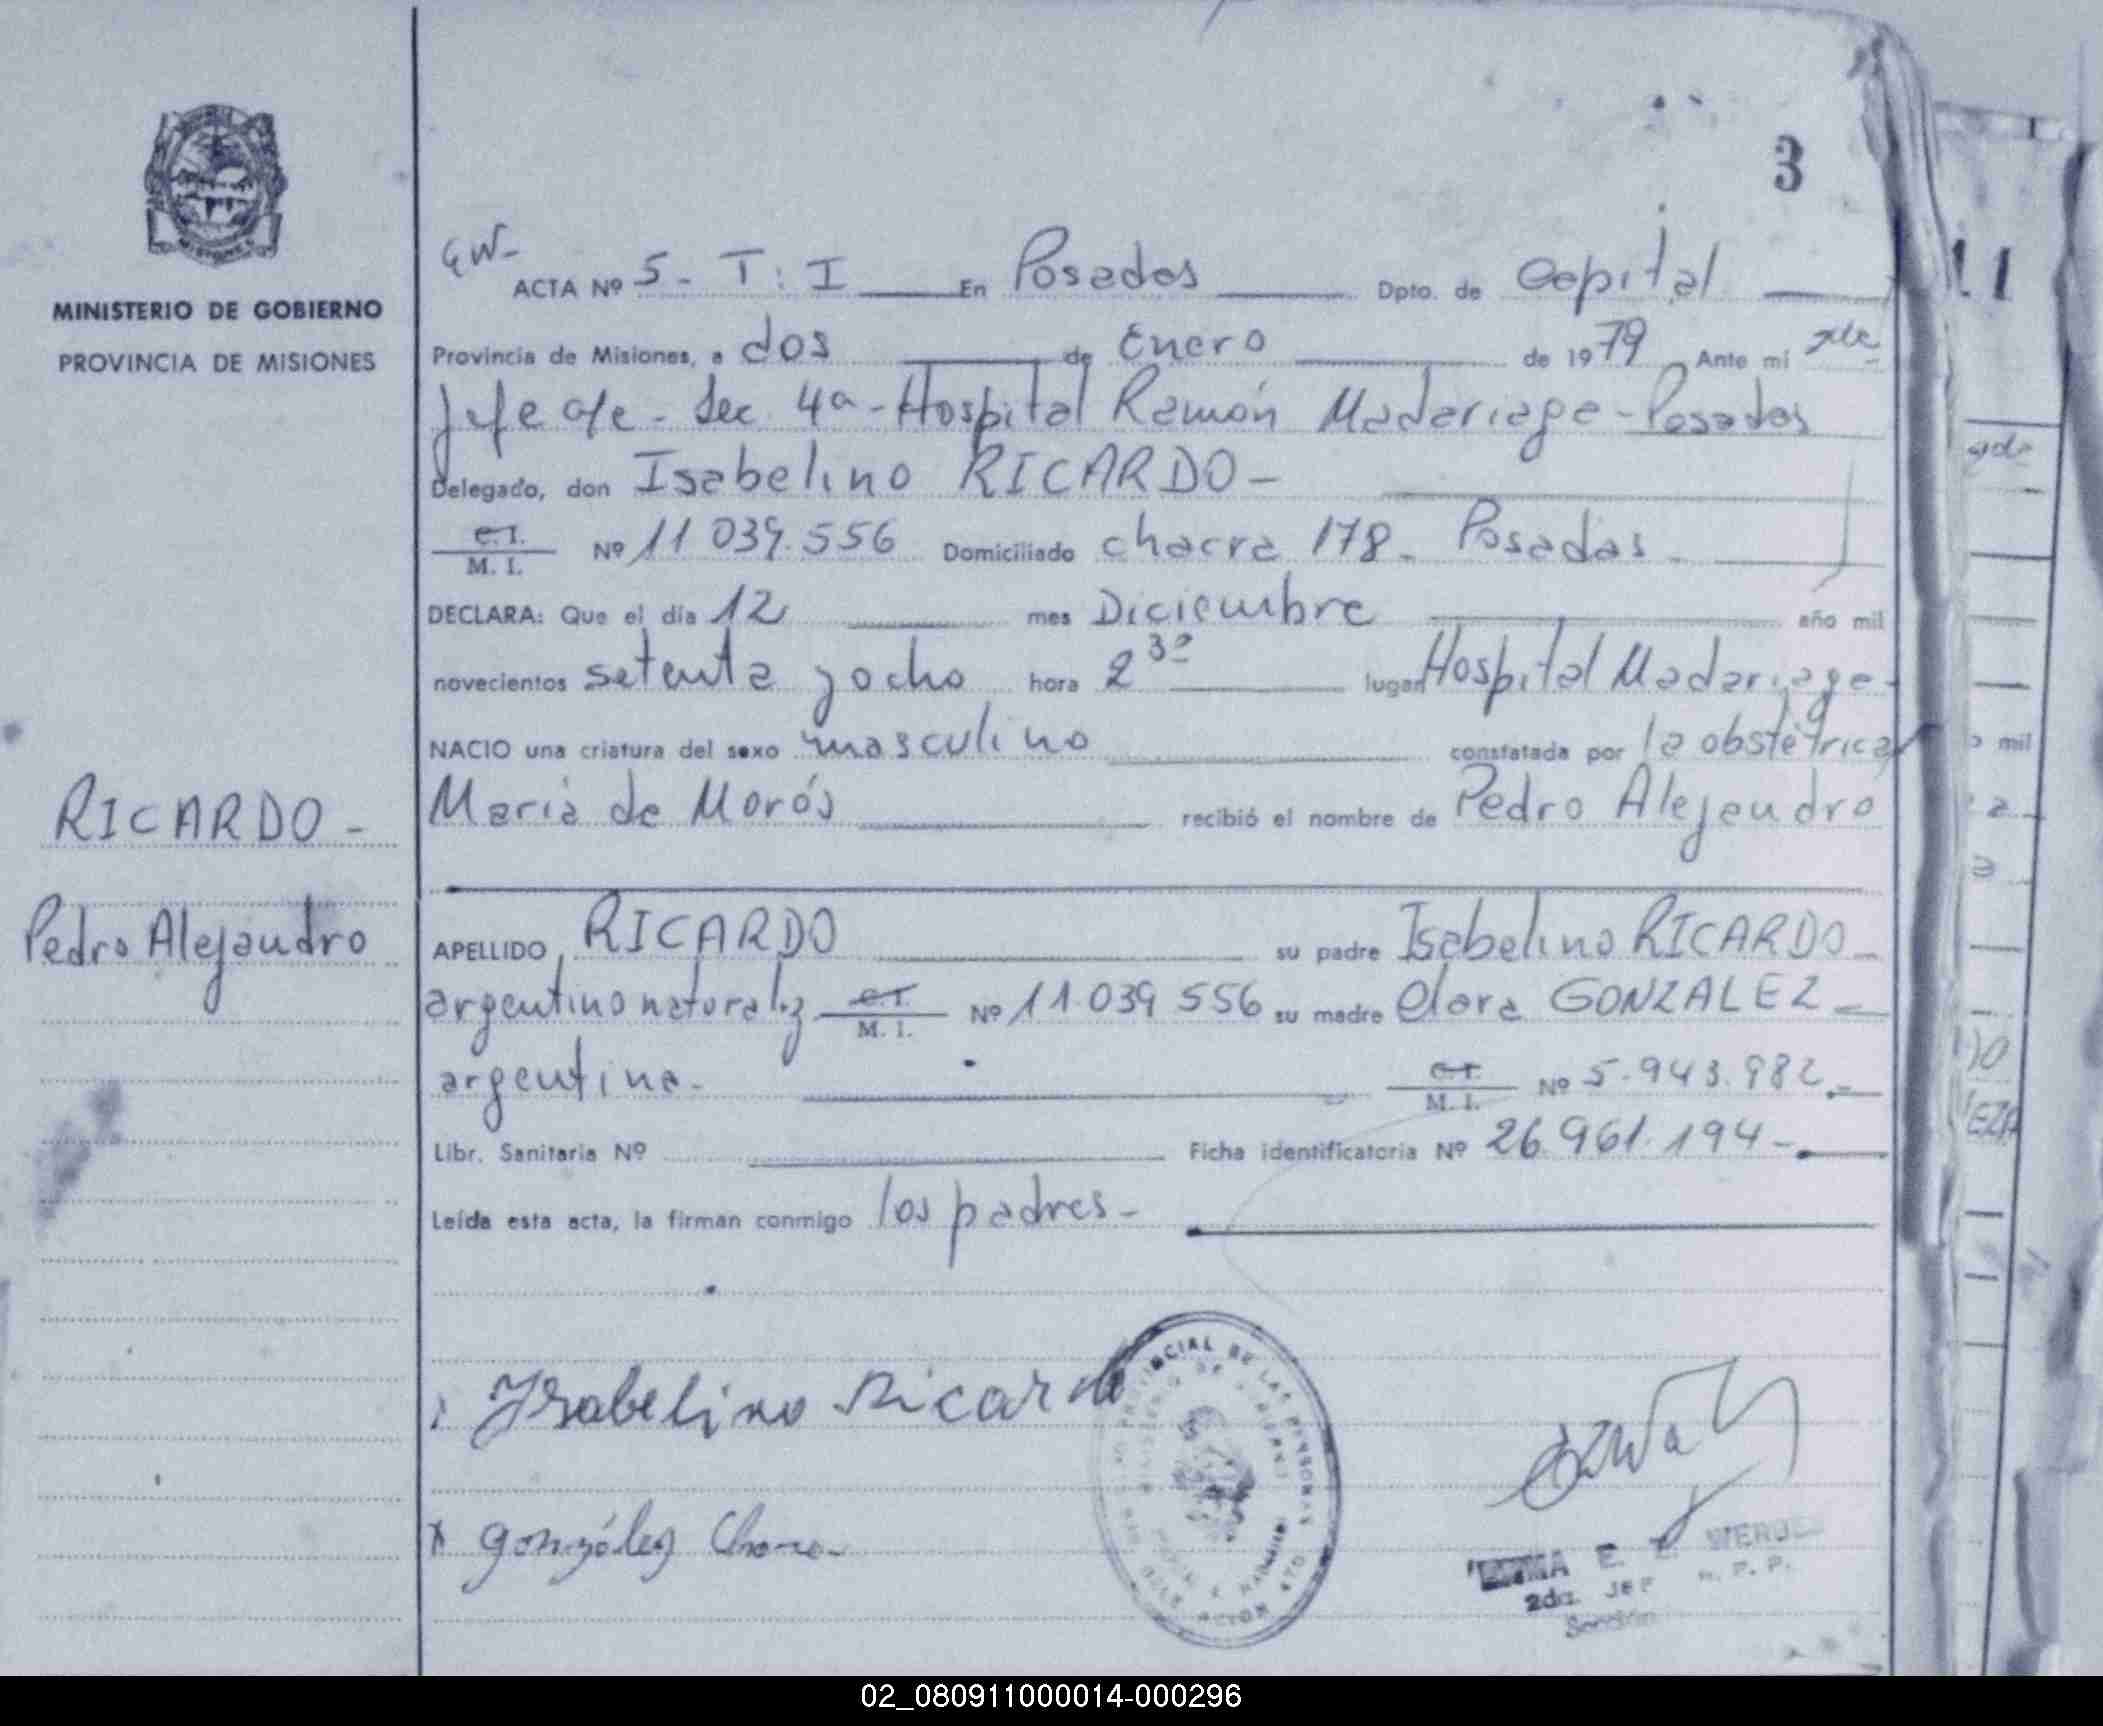 3
MINISTERIO DE GOBIERNO
PROVINCIA DE MISIONES
RICARDO -
Pedro Alejandro
GW-
ACTA Nº 5 - T: I En Posadas Dpto. de Capital
Provincia de Misiones, a dos de Enero de 1979 Ante mí 2da
Jefe a/c - Sec 4a - Hospital Ramón Madariaga - Posadas
Delegado, don Isabelino RICARDO -
C.I.
M. I. Nº 11 039.556 Domiciliado chacra 178 - Posadas -
DECLARA: Que el día 12 mes Diciembre año mil
novecientos setenta y ocho hora 2 30 lugar Hospital Madariaga -
NACIO una criatura del sexo masculino constatada por la obstétrica
María de Morós recibió el nombre de Pedro Alejandro
APELLIDO RICARDO su padre Isabelino RICARDO -
argentino naturaliz C.I. M. I. Nº 11.039 556 su madre Clara GONZALEZ -
argentina - C.I. M. I. Nº 5.943.982 -
Libr. Sanitaria Nº Ficha identificatoria Nº 26.961.194 -
Leída esta acta, la firman conmigo los padres -
Isabelino Ricardo
x González Clara
PROVINCIAL DE LAS PERSONAS
E.
2da. JEF
Sección
02_080911000014-000296